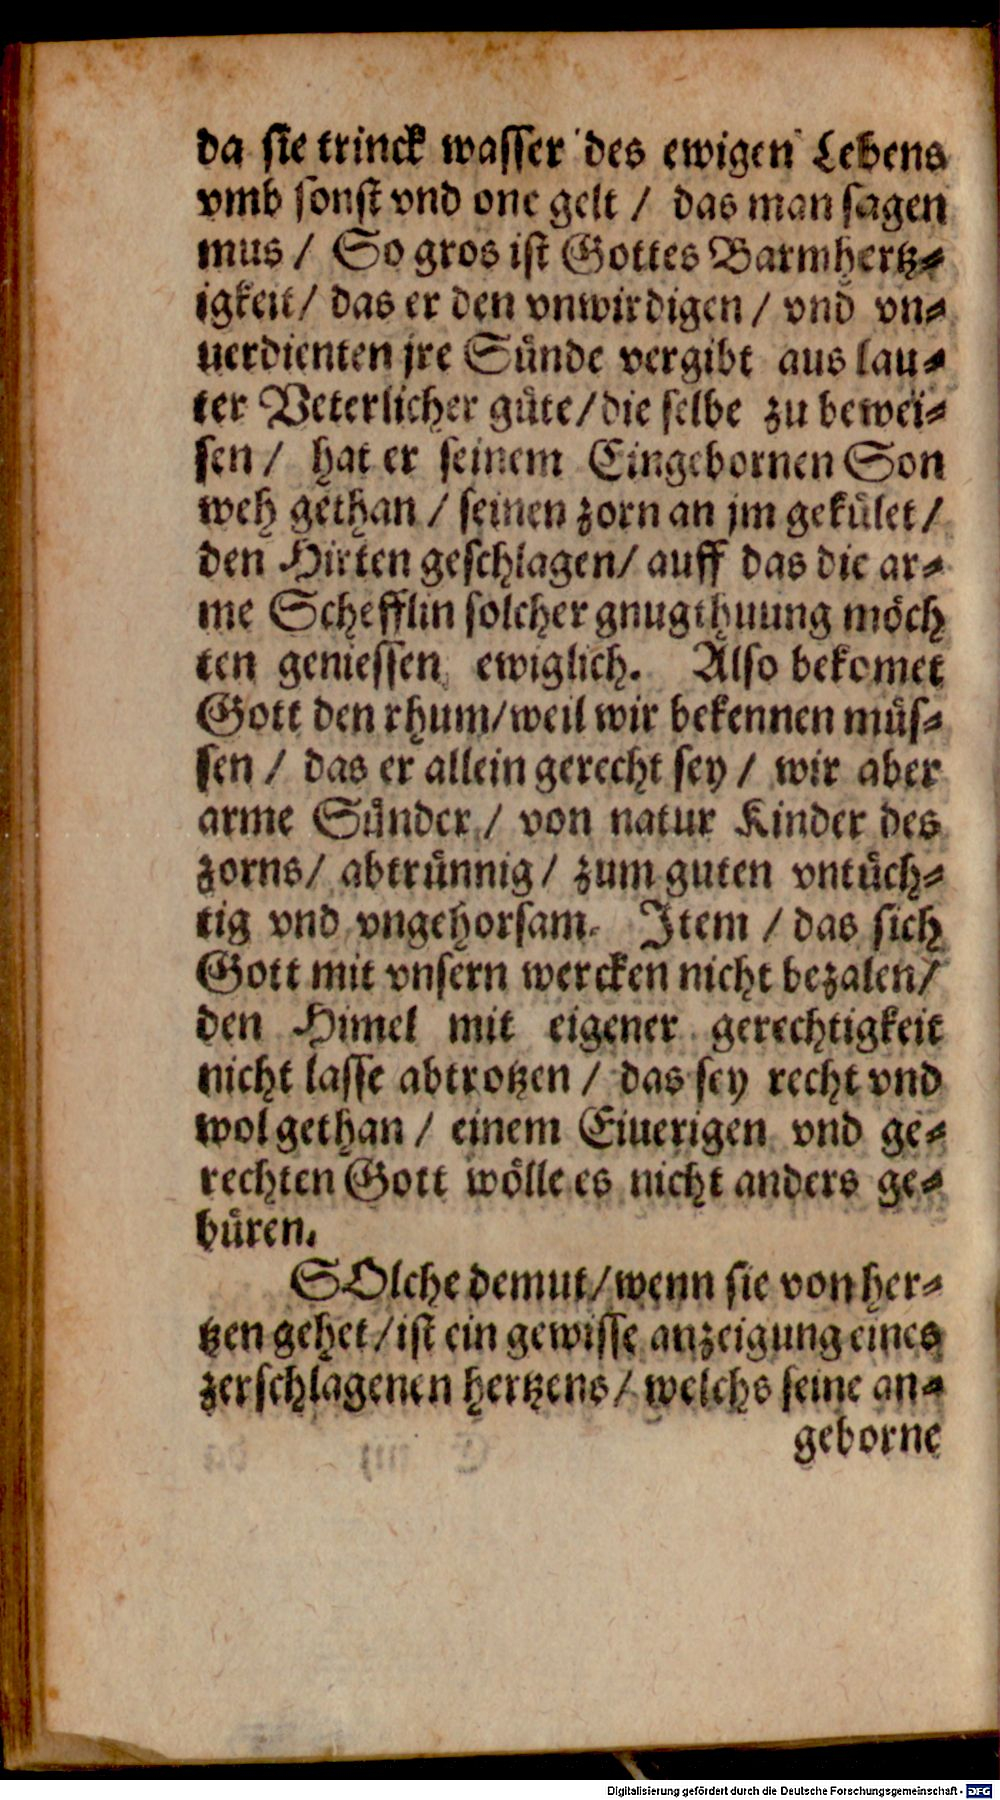 da sie trinck wasser des ewigen Lebens
vmb sonst vnd one gelt / das man sagen
mus / So gros ist Gottes Barmhertz-
igkeit / das er den vnwirdigen / vnd vn-
uerdienten jre Sünde vergibt aus lau-
ter Veterlicher güte / die selbe zu bewei-
sen / hat er seinem Eingebornen Son
weh gethan / seinen zorn an jm gekület /
den Hirten geschlagen / auff das die ar-
me Schefflin solcher gnugthuung möch
ten geniessen ewiglich. Also bekomet
Gott den rhum / weil wir bekennen müs-
sen / das er allein gerecht sey / wir aber
arme Sünder / von natur Kinder des
zorns / abtrünnig / zum guten vntüch-
tig vnd vngehorsam. Item / das sich
Gott mit vnsern wercken nicht bezalen /
den Himel mit eigener gerechtigkeit
nicht lasse abtrotzen / das sey recht vnd
wol gethan / einem Eiuerigen vnd ge-
rechten Gott wölle es nicht anders ge-
büren.
SOlche demut / wenn sie von her-
tzen gehet / ist ein gewisse anzeigung eines
zerschlagenen hertzens / welchs seine an-
geborne
Digitalisierung gefördert durch die Deutsche Forschungsgemeinschaft - DFG